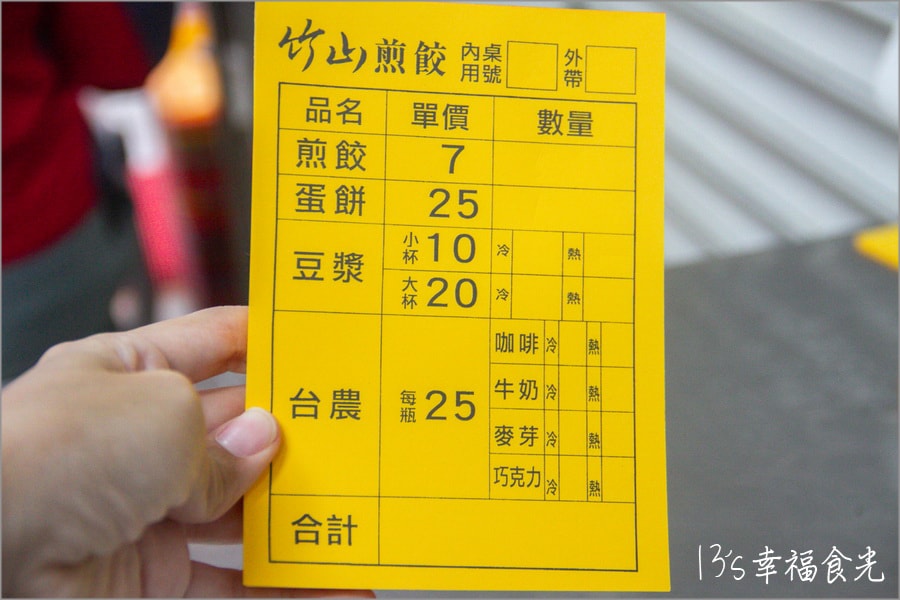 竹山煎餃 內用 桌號 外帶
品名 單價 數量
煎餃 7
蛋餅 25
豆漿 小杯 10 冷 熱
大杯 20 冷 熱
台農 每瓶 25 咖啡 冷 熱
牛奶 冷 熱
麥芽 冷 熱
巧克力 冷 熱
合計
13's幸福食光